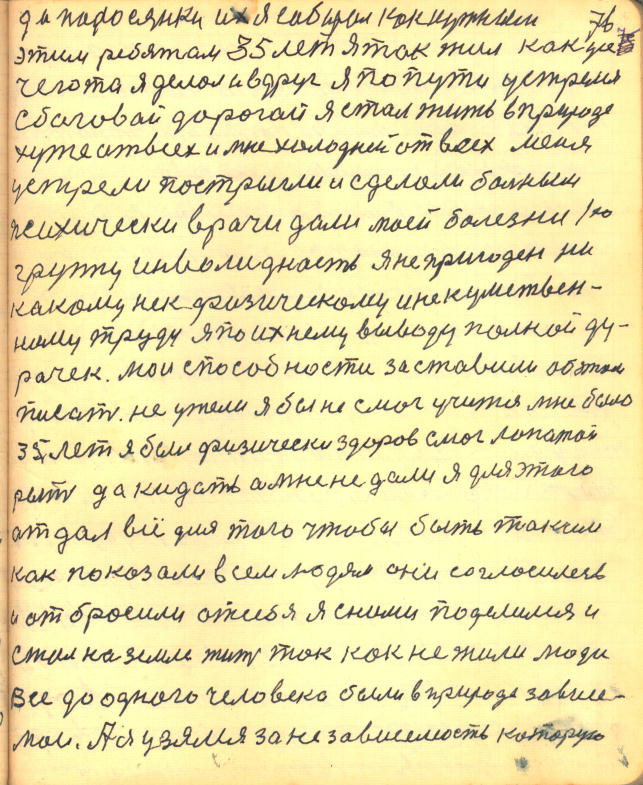 да паросянки их я собирал как нужным 76
этим ребятам 35 лет я так жил как уе
чегота я делол и вдруг я по пути устремя
с баговай дорогай я стал жить в природе
хуже от всех и мне холодней от всех меня
устрели постригли и сделоли болным
психически врачи дали моей болезни 1ю
группу инволидность я не пригоден ни
какому нек физическому и не к умствен-
ному труду я по ихнему выводу полной ду-
рачек. мои способности заставили обэтом
писать. не ужели я бы не смог учится мне было
35, лет я был физически здоров смог лопатой
рыть да кидать а мне не дали я для этого
отдал всё для того чтобы быть таким
как показали всем людям они согласились
и отбросили от себя я с ними поделился и
стал на земле жить так как не жили люди
Все до одного человека были в природе зависи-
мои. А я узялся за не зависемость которую